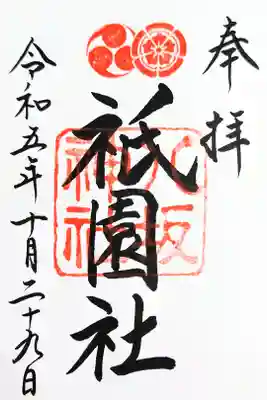 奉拝
祇園社
八坂神社
令和五年十月二十九日